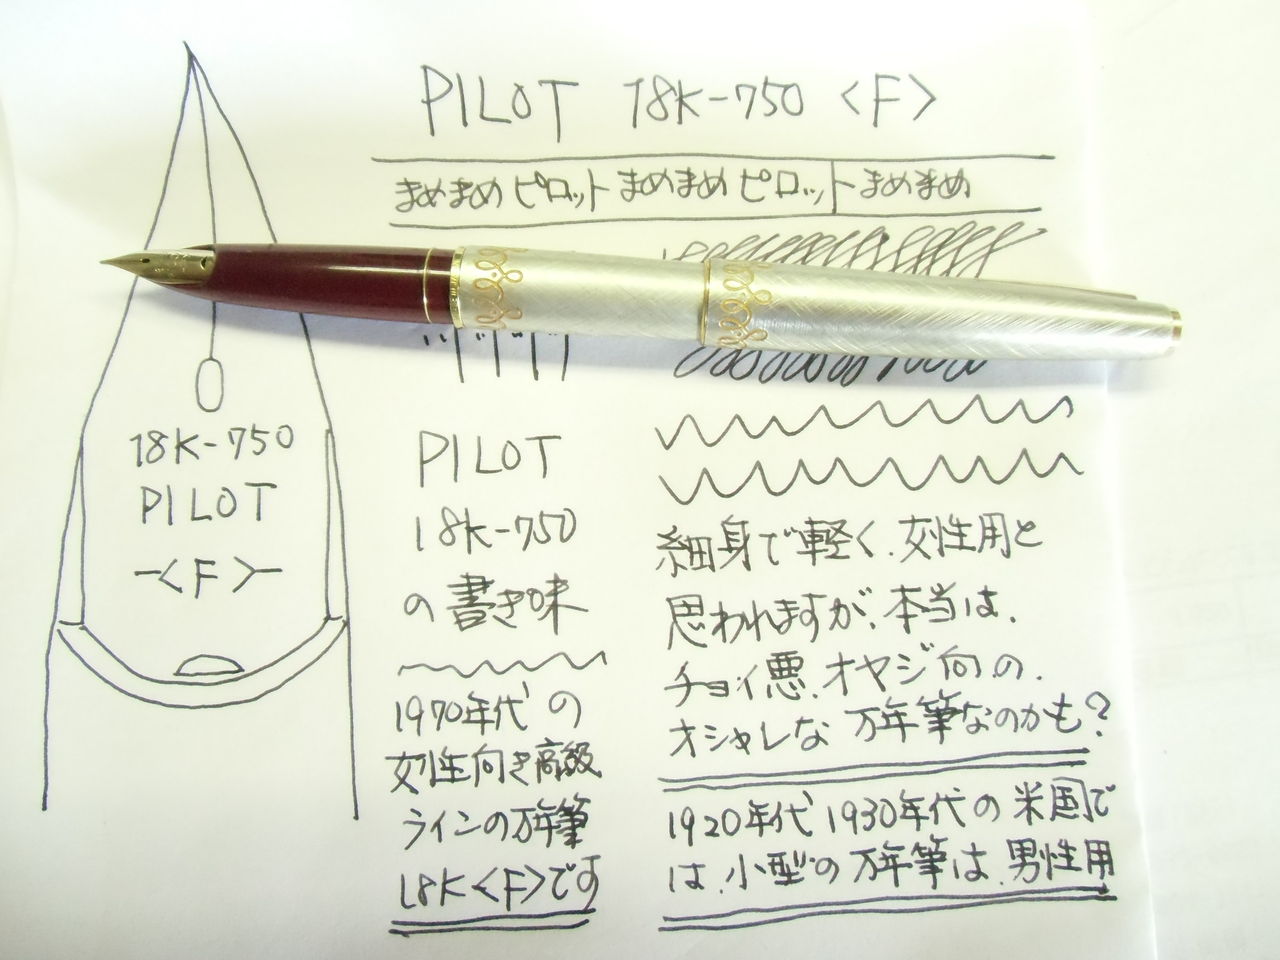 PILOT 18K-750 <F>
まめまめピロットまめまめピロットまめまめ
18K-750
PILOT
<F>
PILOT
18K-750
の書き味
1970年代の
女性向き高級
ラインの万年筆
18K<F>です
細身で軽く、女性用と
思われますが、本当は、
チョイ悪、オヤジ向の、
オシャレな万年筆なのかも?
1920年代1930年代の米国で
は、小型の万年筆は、男性用